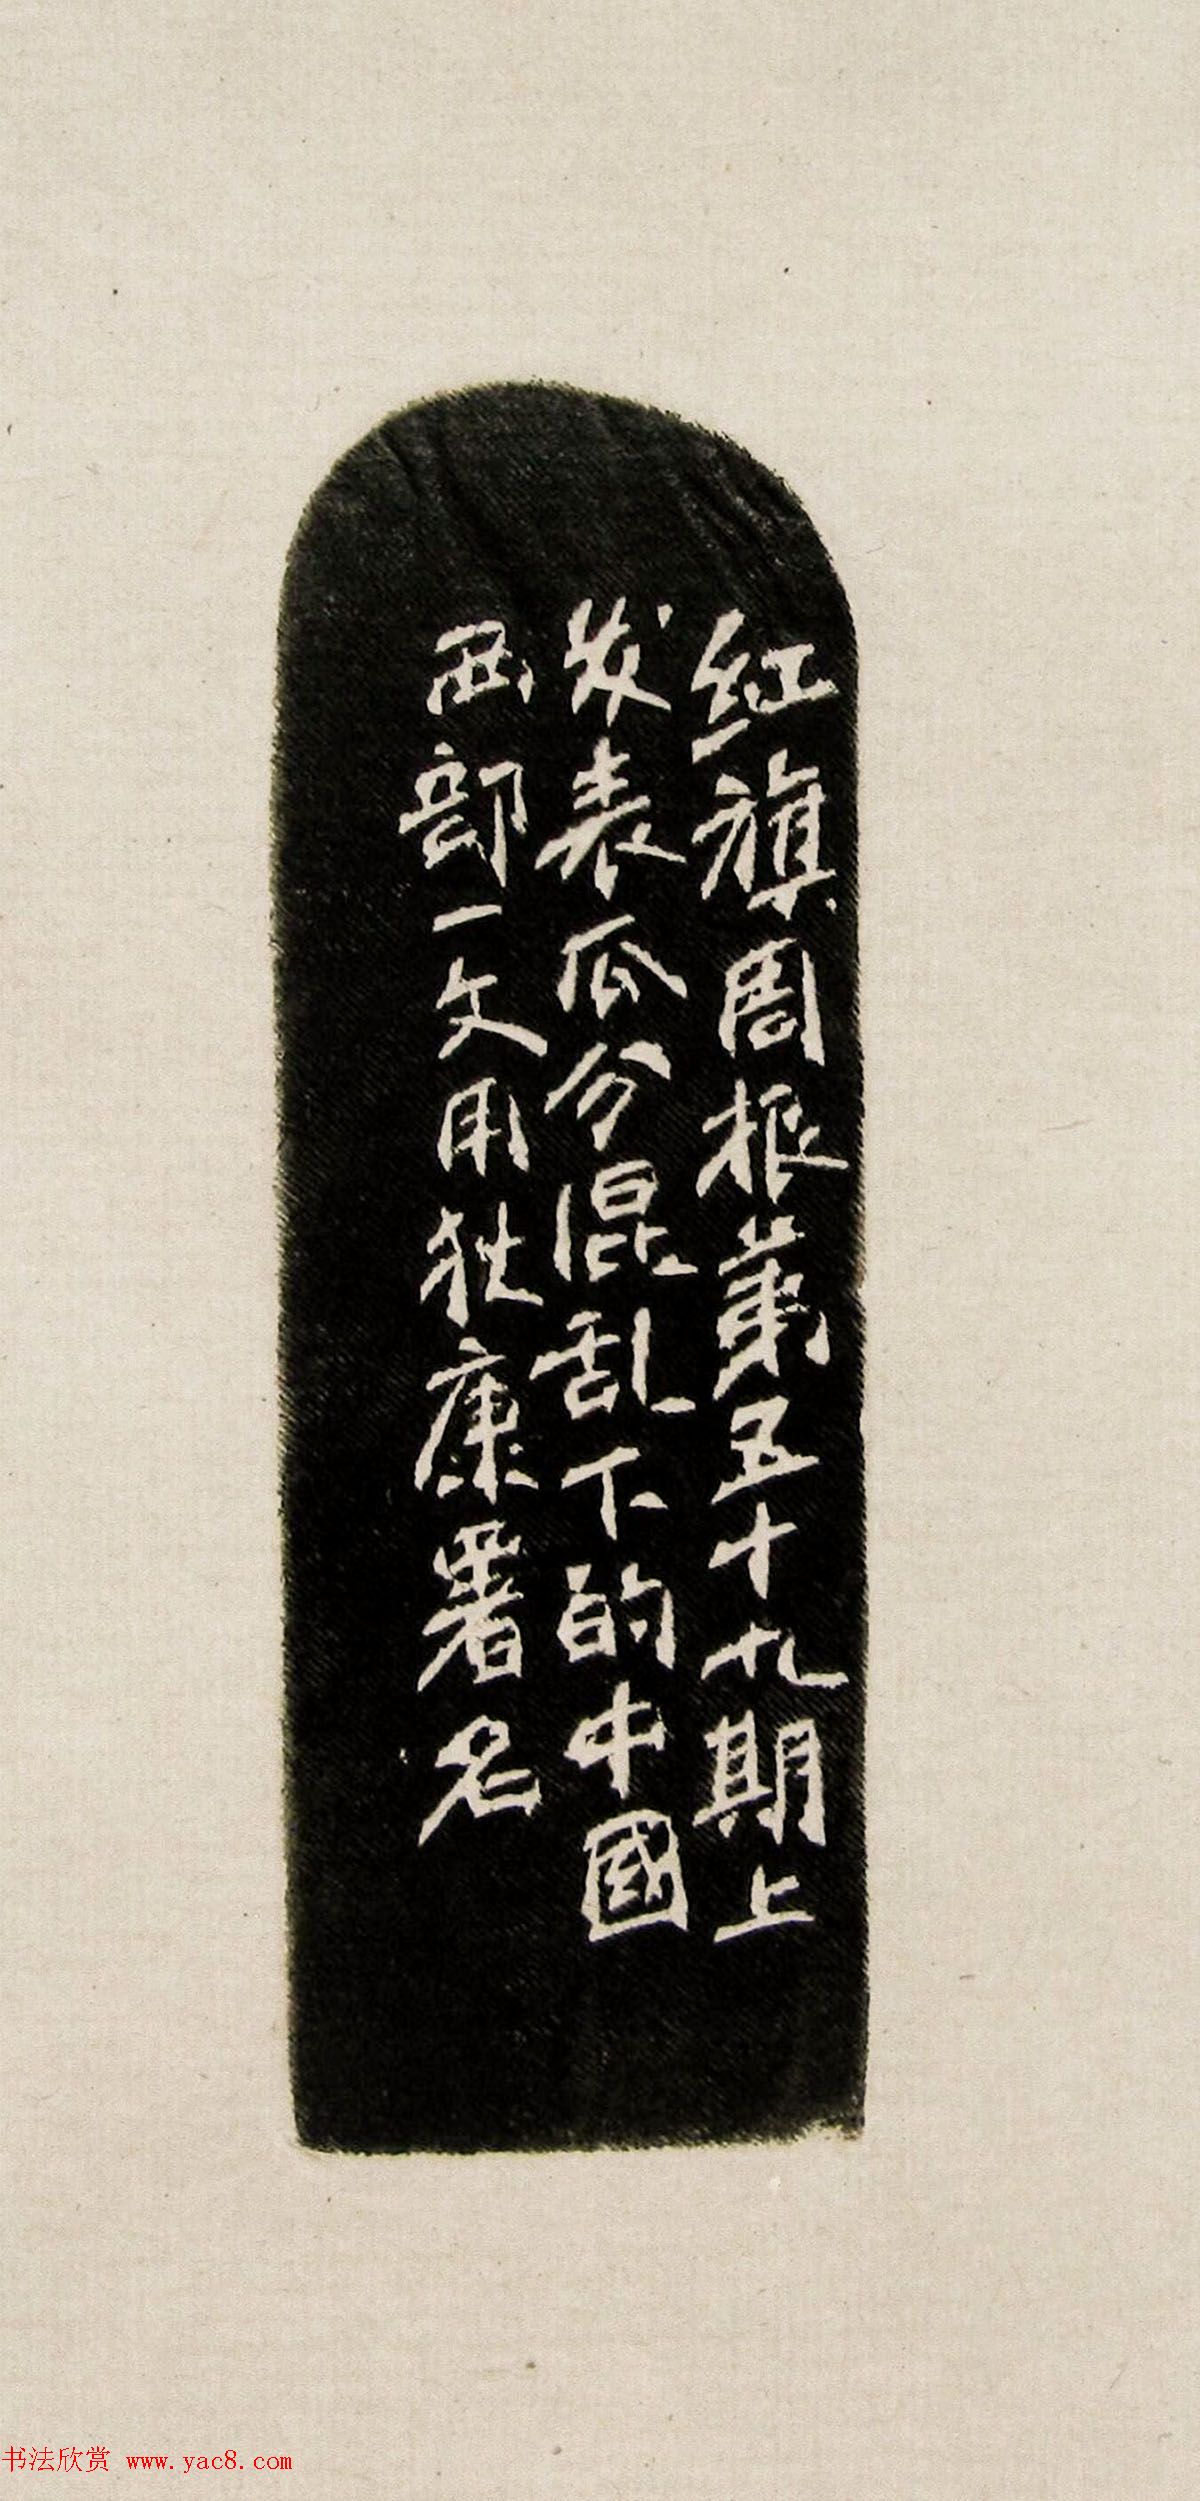 红旗周报第五十九期上
发表瓜分混乱下的中國
西部一文用狄康署名
书法欣赏 www.yac8.com